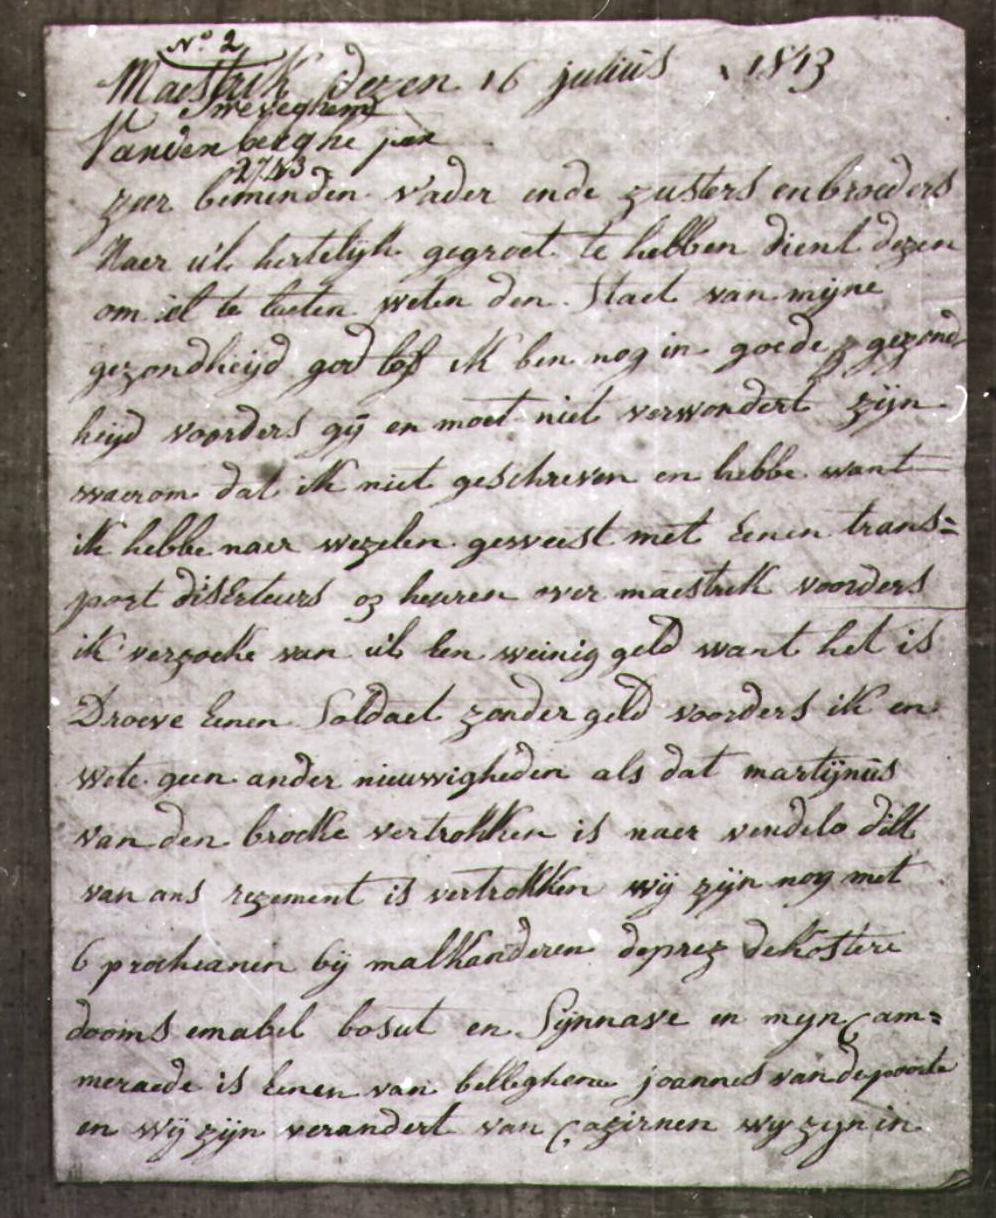 N° 2
Maestrik dezen 16 julius 1813
Sweveghem
Vandenberghe jan
2743
zeer beminden vader ende zusters en broeders
Naer ul hertelijk gegroet te hebben dient dezen
om ul te laeten weten den Staet van mijne
gezondheijd god lof ik ben nog in goede gezond
heijd voorders gij en moet niet verwondert zijn
waerom dat ik niet geschreven en hebbe want
ik hebbe naer wezelen geweest met Eenen trans=
port diserteurs 03 heuren over maestrik voorders
ik verzoeke van ul Een weinig geld want het is
Droeve Eenen Soldaet zonder geld voorders ik en
Wete geen ander nieuwigheden als dat martijnus
van den broeke vertrokken is naer vendelo
van ons rezement is vertrokken wij zijn nog met
6 procheanen bij malkanderen deprez dekostere
dooms emabel bosut en Sijnnave en mijn Cam=
meraede is Eenen van belleghem joannes vandepoorte
en wij zijn verandert van Cazirnen wy zyn in